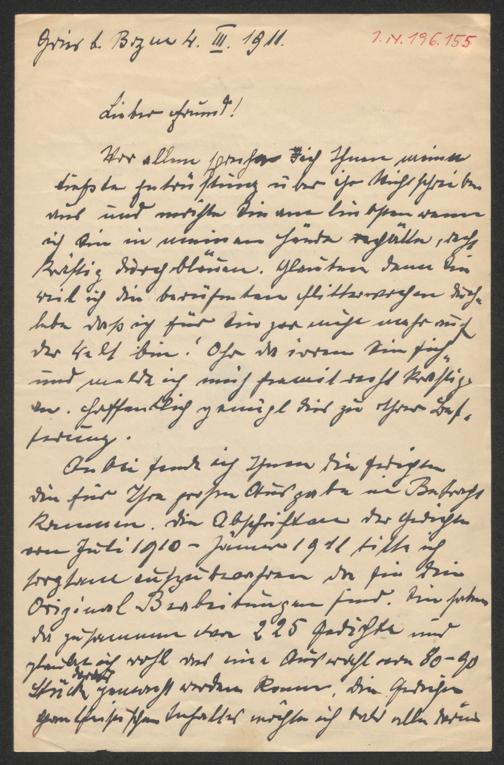 Gries b. Bozen 4. III. 1911.
I.N. 196.155
Lieber Freund!
Vor allem spreche ich Ihnen meine
tiefste Entrüstung über ihr Nichtschreiben
aus und möchte Sie am liebsten wenn
ich Sie in meinen Hände hätte, recht
kräftig durchbläuen. Glauben denn Sie
weil ich die berühmten Flitterwochen durch-
lebe daß ich für Sie gar nicht mehr auf
der Welt bin! Oho da irren Sie sich
und melde ich mich hiemit recht kräftig
an. Hoffentlich genügt dies zu Ihrer Bes-
serung.
Anbei sende ich Ihnen die Gedichte
die für Ihre große Ausgabe in Betracht
kommen. Die Abschriften der Gedichte
vom Juli 1910 - Jänner 1911 bitte ich
sorgsam aufzubewahren da sie die
Original Bearbeitungen sind. Sie haben
da zusammen etwa 225 Gedichte und
glaube ich wohl das eine Auswahl von 80-90
Stück daraus gemacht werden kann, die Gedichte
pantheistischen Inhaltes möchte ich daß alle darin